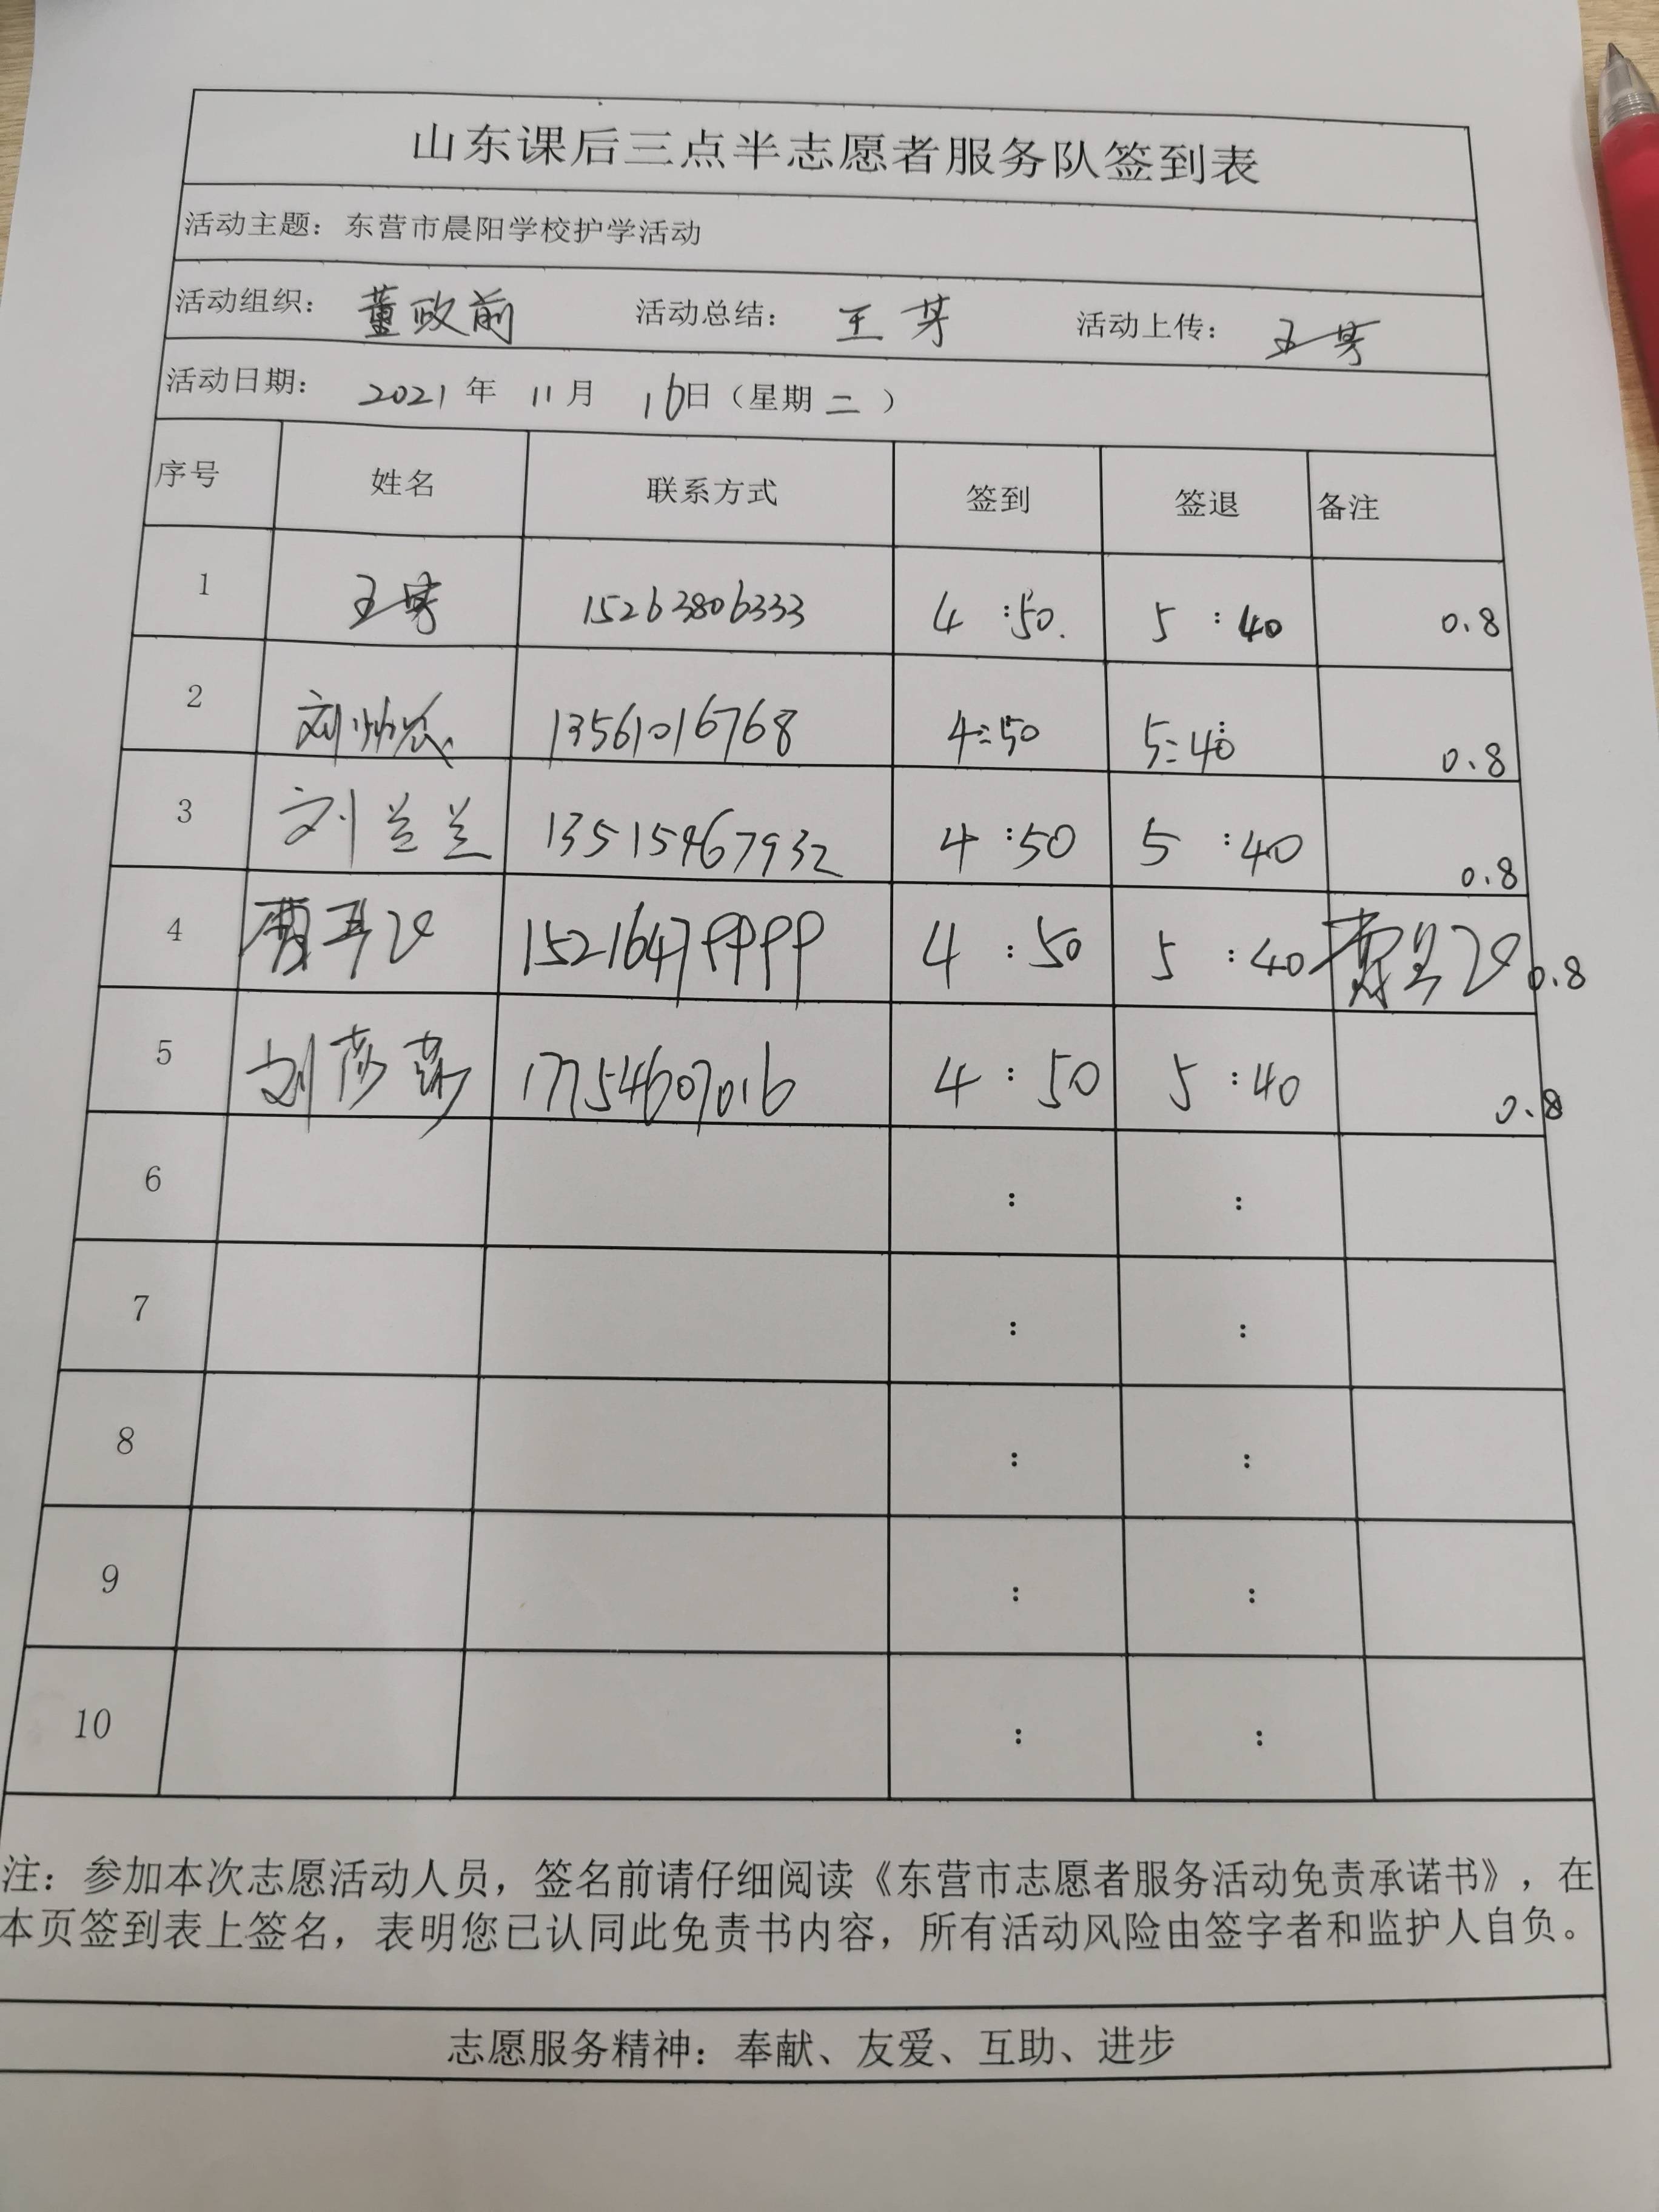 山东课后三点半志愿者服务队签到表
活动主题：东营市晨阳学校护学活动
活动组织：董政前 活动总结：王芳 活动上传：王芳
活动日期：2021年 11月 16日（星期二）
序号 姓名 联系方式 签到 签退 备注
1 王芳 15263806333 4:50. 5:40 0.8
2 刘 13561016768 4:50 5:40 0.8
3 刘兰兰 13515467932 4:50 5:40 0.8
4 15216479999 4:50 5:40 0.8
5 刘彦 17754607016 4:50 5:40 0.8
6 : :
7 : :
8 : :
9 : :
10 : :
注：参加本次志愿活动人员，签名前请仔细阅读《东营市志愿者服务活动免责承诺书》，在
本页签到表上签名，表明您已认同此免责书内容，所有活动风险由签字者和监护人自负。
志愿服务精神：奉献、友爱、互助、进步